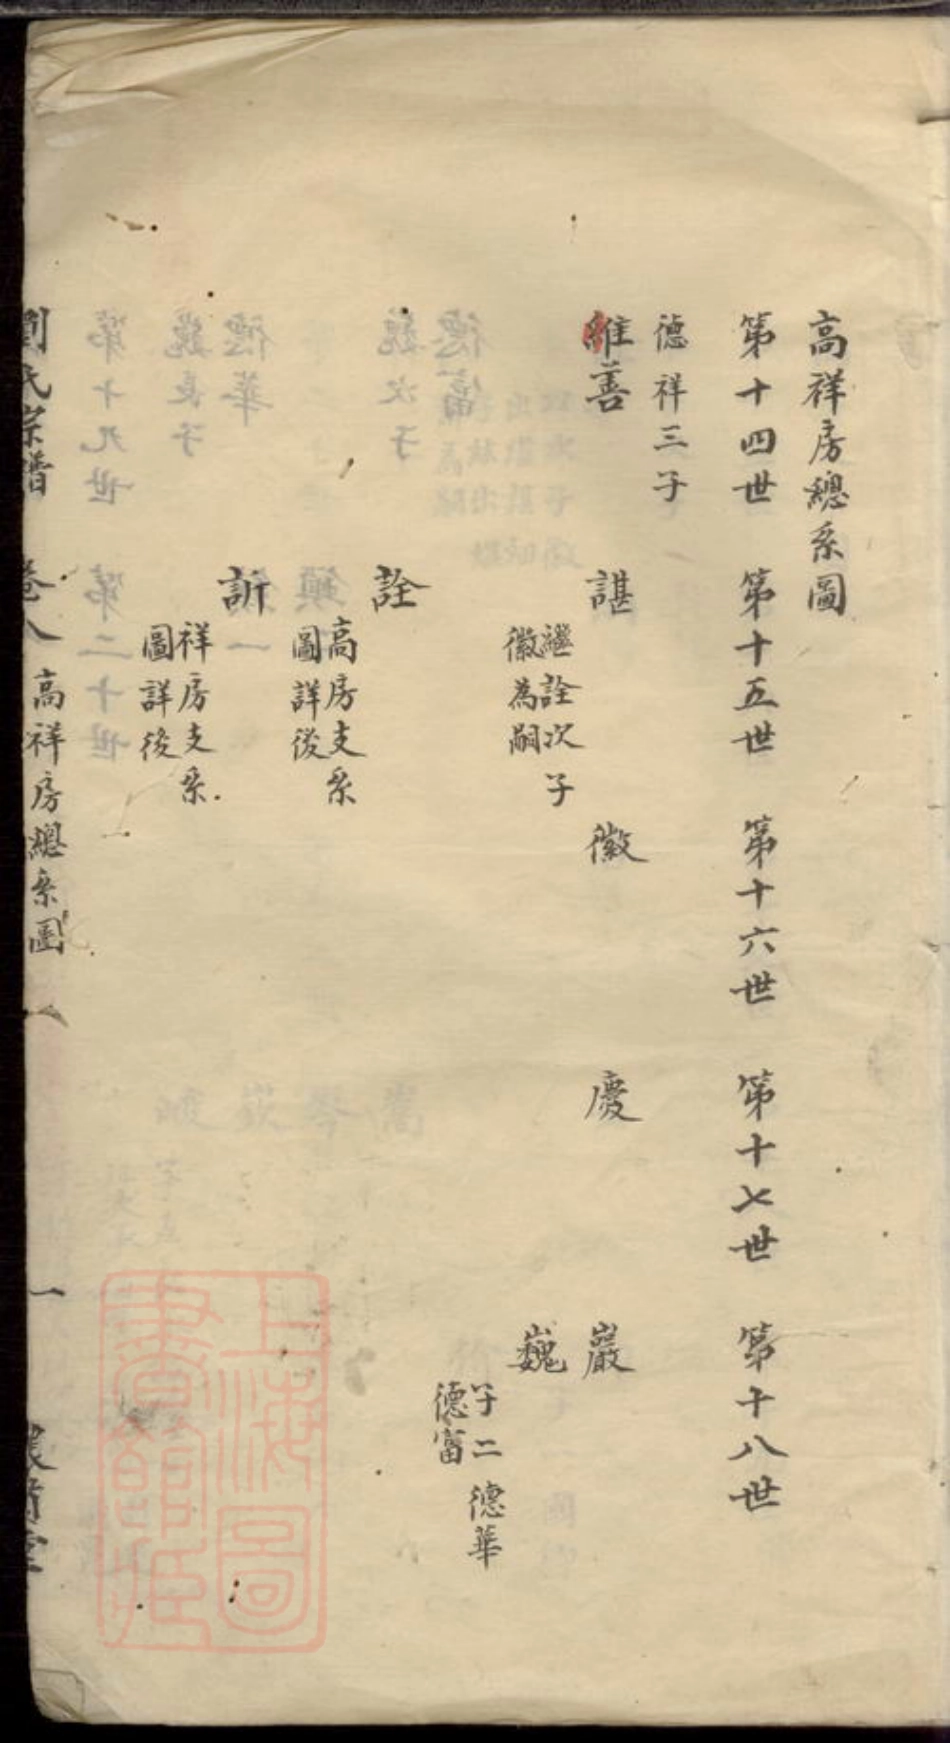 高祥房總系圖
第十四世 第十五世 第十六世 第十七世 第十八世
德祥三子
維善 諶 徽 慶 巖
繼詮次子
徽為嗣
巍
子二 德華
德富
詮
高房支系
圖詳後
訢
祥房支系
圖詳後
劉氏宗譜 卷八 高祥房總系圖 一
上海圖
書館藏